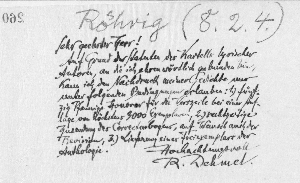 360
Röhrig (8. 2. 4.)
Sehr geehrter Herr!
Auf Grund der Statuten des Kartells lyrischer
Autoren, an die ich ehrenwörtlich gebunden bin,
kann ich den Nachdruck meiner Gedichte nur
unter folgenden Bedingungen erlauben: 1) fünf-
zig Pfennige Honorar für die Verszeile bei einer Auf-
lage von höchstens 3000 Exemplaren, 2) rechtzeitige
Zusendung der Correcturbogen, auf Wunsch auch der
Revision, 3) Lieferung eines Freiexemplars der
Anthologie.
Hochachtungsvoll
R. Dehmel.